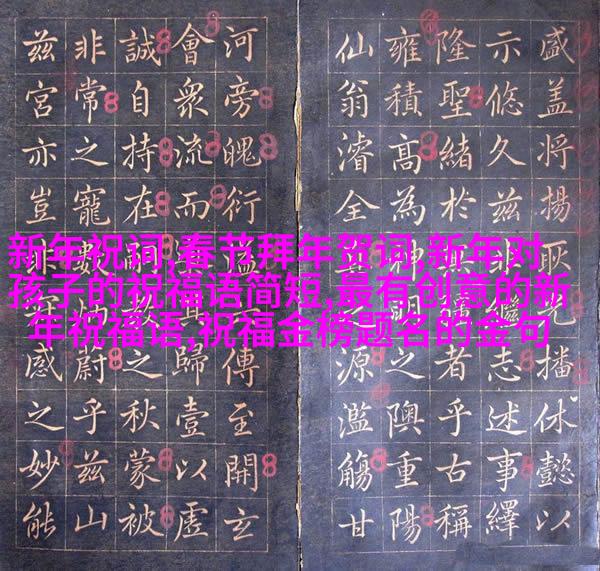 盛盖将揚耿光播休懿以
示悠久茲非繼志述事繹
隆聖緒於無疆者乎古稱
雍積高為神明之隩重陽
仙翁濬全真源濫觴甘
河旁魄衍溢傳至開玄
會衆流而歸壹以虛
誠自持在嗣教之秋蒙被
非常之寵數炳蔚乎茲山
茲宮亦豈非感之妙能
新年祝词,春节拜年贺词,新年对
孩子的祝福语简短,最有创意的新
年祝福语,祝福金榜题名的金句